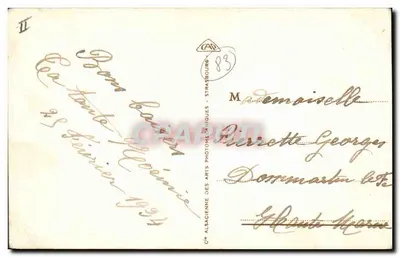 II
Bons baisers
Ta tante Noémie
25 février 1932
CAP
83
Cie ALSACIENNE DES ARTS PHOTOMÉCANIQUES - STRASBOURG
Mademoiselle
Pierrette Georges
Dommartin le Fc
Haute Marne